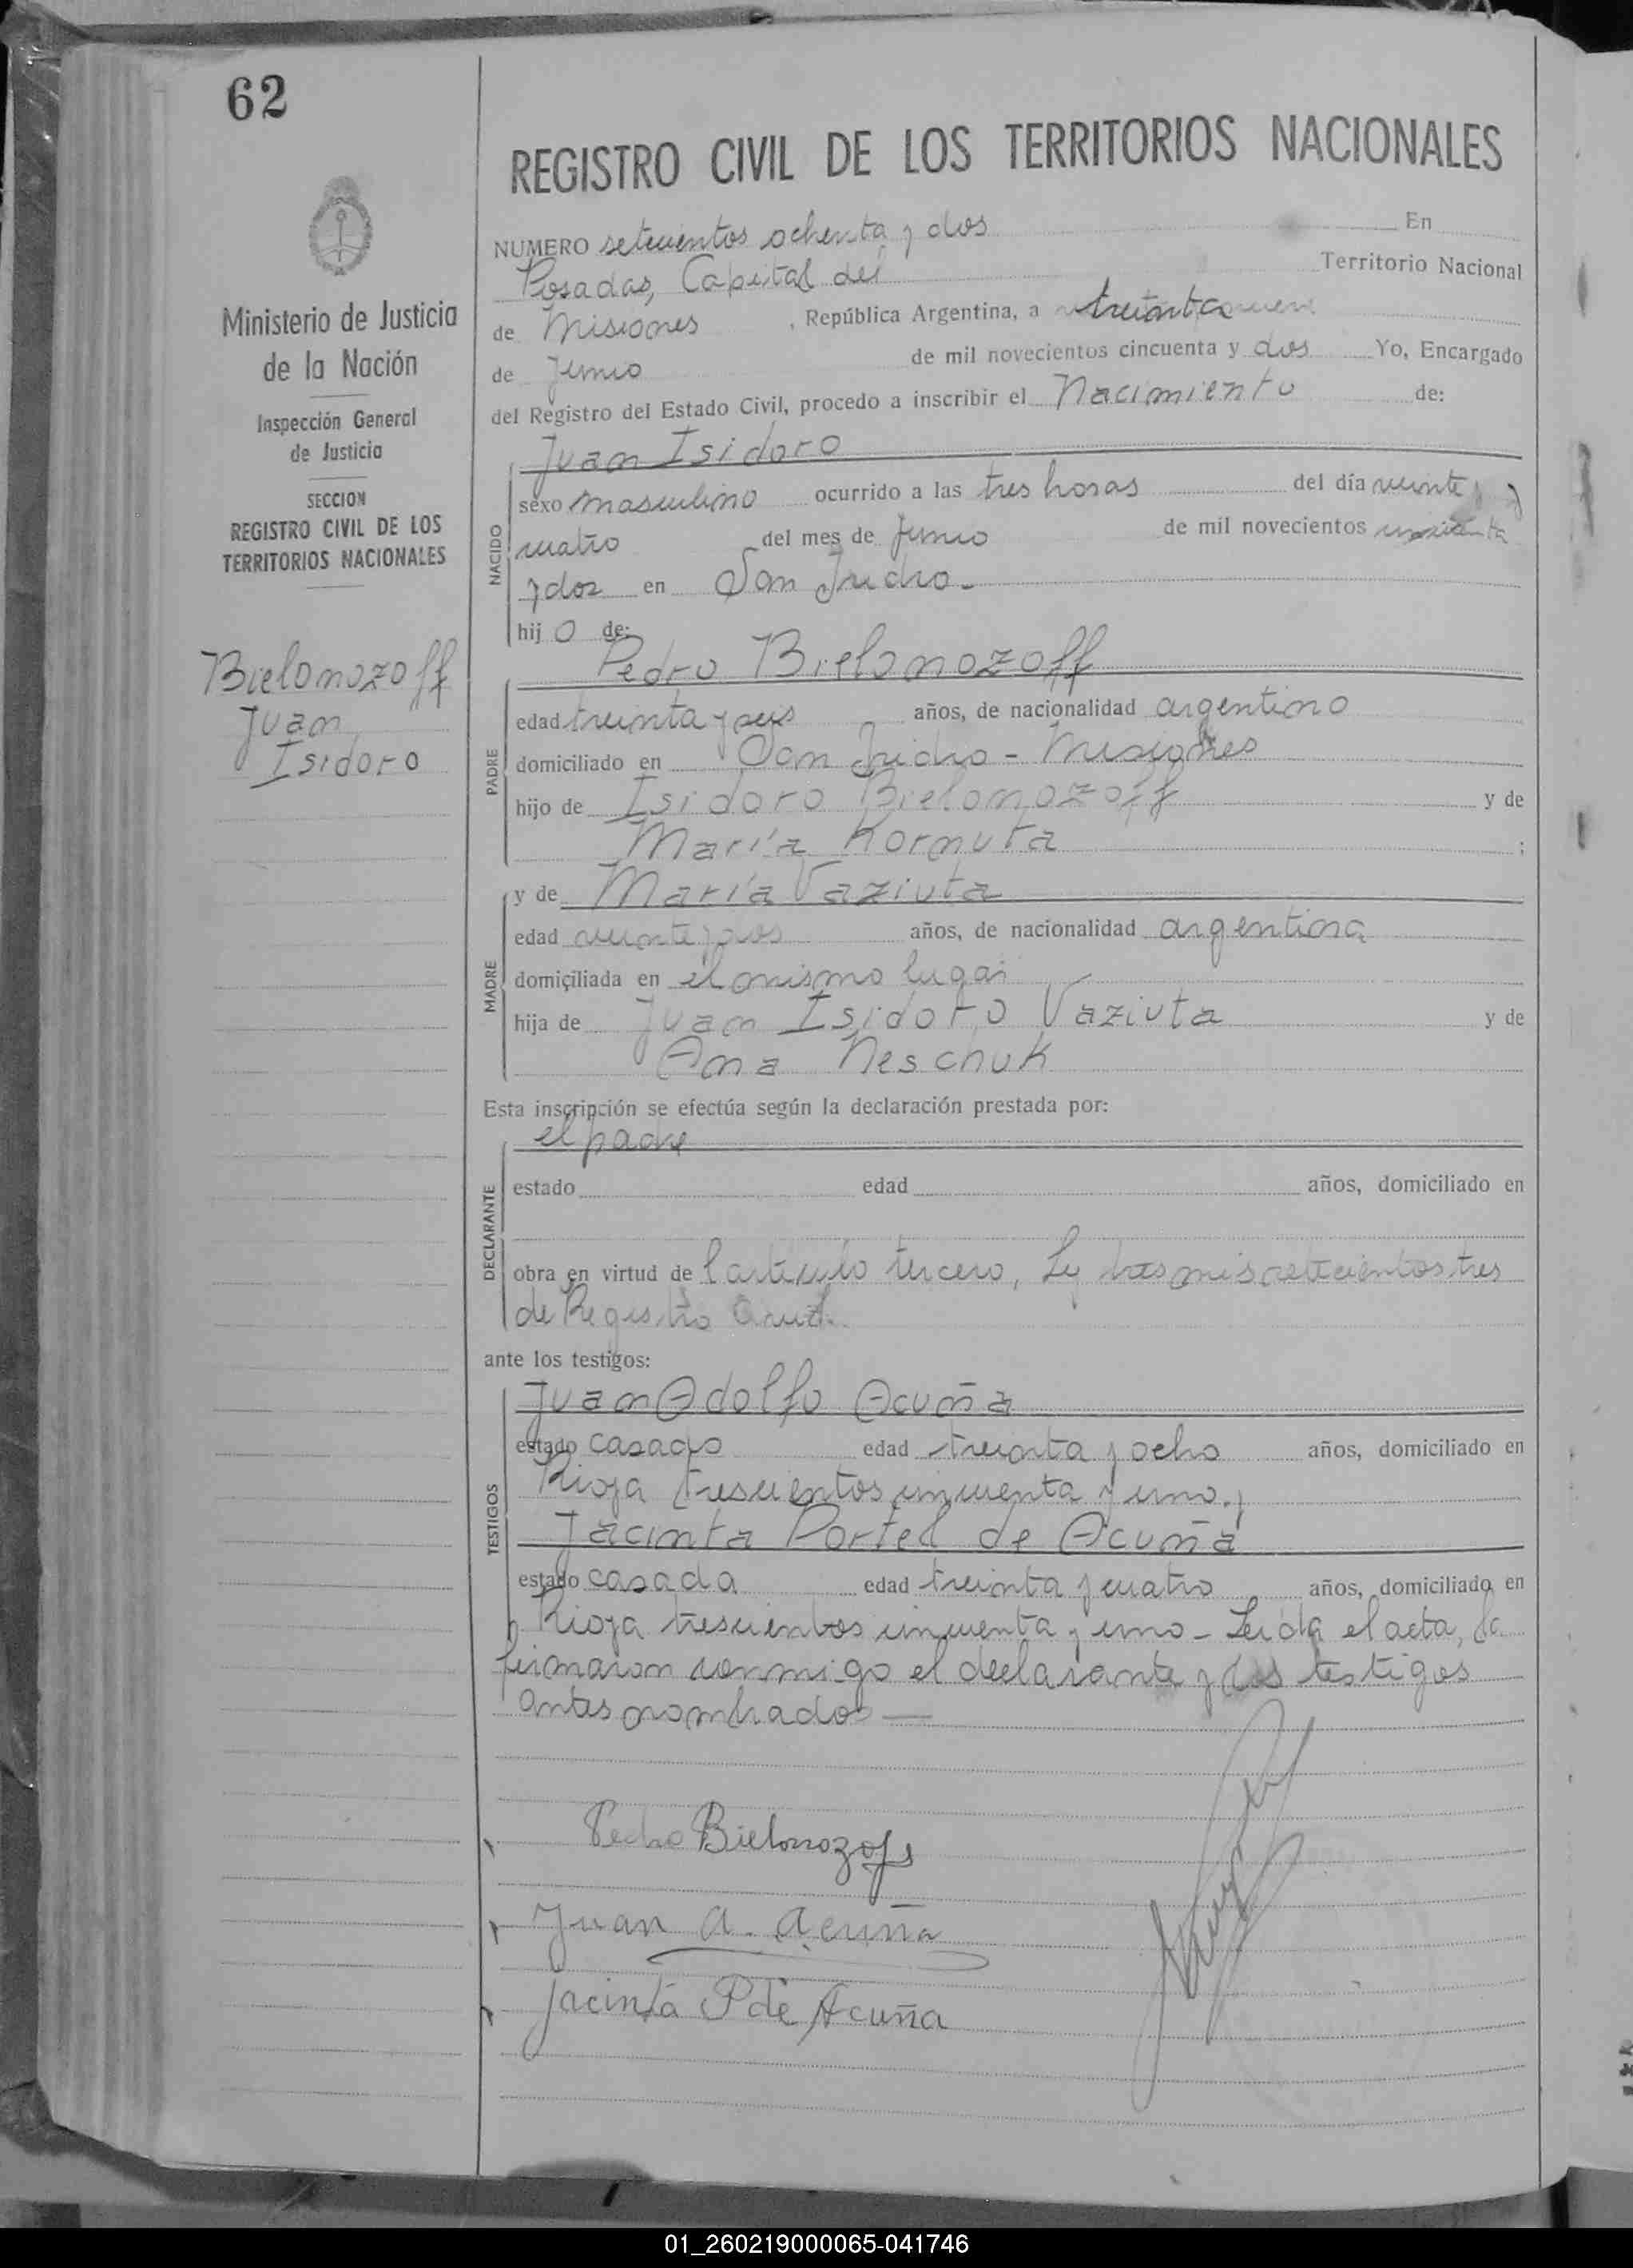 62
REGISTRO CIVIL DE LOS TERRITORIOS NACIONALES
Ministerio de Justicia
de la Nación
Inspección General
de Justicia
SECCION
REGISTRO CIVIL DE LOS
TERRITORIOS NACIONALES
Bielonozoff
Juan
Isidoro
NUMERO setecientos ochenta y dos En
Posadas, Capital del Territorio Nacional
de Misiones , República Argentina, a treinta
de Junio de mil novecientos cincuenta y dos Yo, Encargado
del Registro del Estado Civil, procedo a inscribir el Nacimiento de:
Juan Isidoro
NACIDO
sexo masculino ocurrido a las tres horas del día veinte y
cuatro del mes de Junio de mil novecientos cincuenta
y dos en San Isidro.-
hij o de:
Pedro Bielonozoff
PADRE
edad treinta y seis años, de nacionalidad argentino
domiciliado en San Isidro - Misiones
hijo de Isidoro Bielonozoff y de
María Kornuta ;
y de María Vaziuta
MADRE
edad veinte y dos años, de nacionalidad argentina
domiciliada en el mismo lugar
hija de Juan Isidoro Vaziuta y de
Ana Neschuk
Esta inscripción se efectúa según la declaración prestada por:
el padre
DECLARANTE
estado edad años, domiciliado en
obra en virtud de l artículo tercero, Ley tres mil setecientos tres
de Registro
ante los testigos:
Juan Adolfo Acuña
TESTIGOS
estado casado edad treinta y ocho años, domiciliado en
Rioja trescientos cincuenta y uno. y
Jacinta Portel de Acuña
estado casada edad treinta y cuatro años, domiciliado en
Rioja trescientos cincuenta y uno - Leída el acta, la
firmaron conmigo el declarante y los testigos
antes nombrados —
Pedro Bielonozoff
Juan A. Acuña
Jacinta P de Acuña
01_260219000065-041746